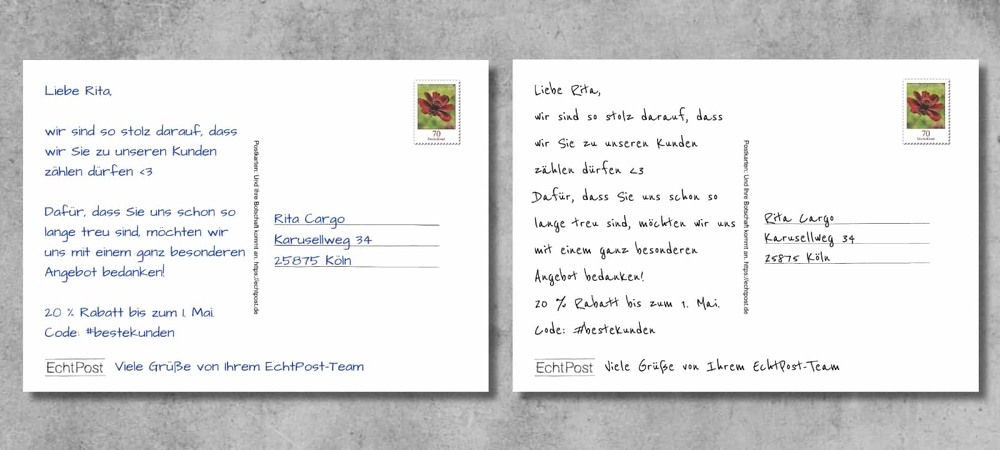 Liebe Rita,
wir sind so stolz darauf, dass
wir Sie zu unseren Kunden
zählen dürfen <3
Dafür, dass Sie uns schon so
lange treu sind, möchten wir
uns mit einem ganz besonderen
Angebot bedanken!
20 % Rabatt bis zum 1. Mai.
Code: #bestekunden
EchtPost Viele Grüße von Ihrem EchtPost-Team
Postkarten: Und Ihre Botschaft kommt an. https://echtpost.de
70
Deutschland
Rita Cargo
Karusellweg 34
25875 Köln
Liebe Rita,
wir sind so stolz darauf, dass
wir Sie zu unseren Kunden
zählen dürfen <3
Dafür, dass Sie uns schon so
lange treu sind, möchten wir uns
mit einem ganz besonderen
Angebot bedanken!
20 % Rabatt bis zum 1. Mai.
Code: #bestekunden
EchtPost Viele Grüße von Ihrem EchtPost-Team
Postkarten: Und Ihre Botschaft kommt an. https://echtpost.de
70
Deutschland
Rita Cargo
Karusellweg 34
25875 Köln